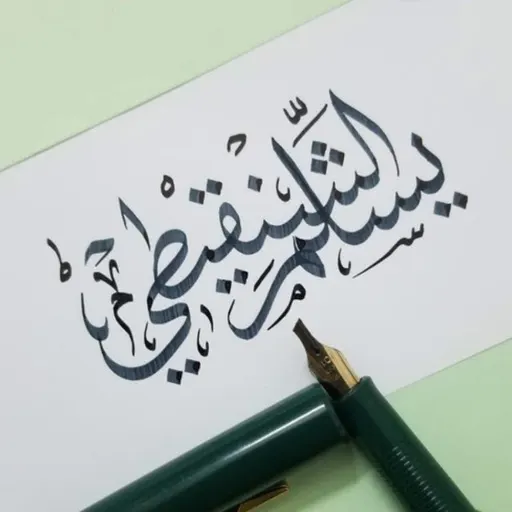 يسلم الشنقيطي